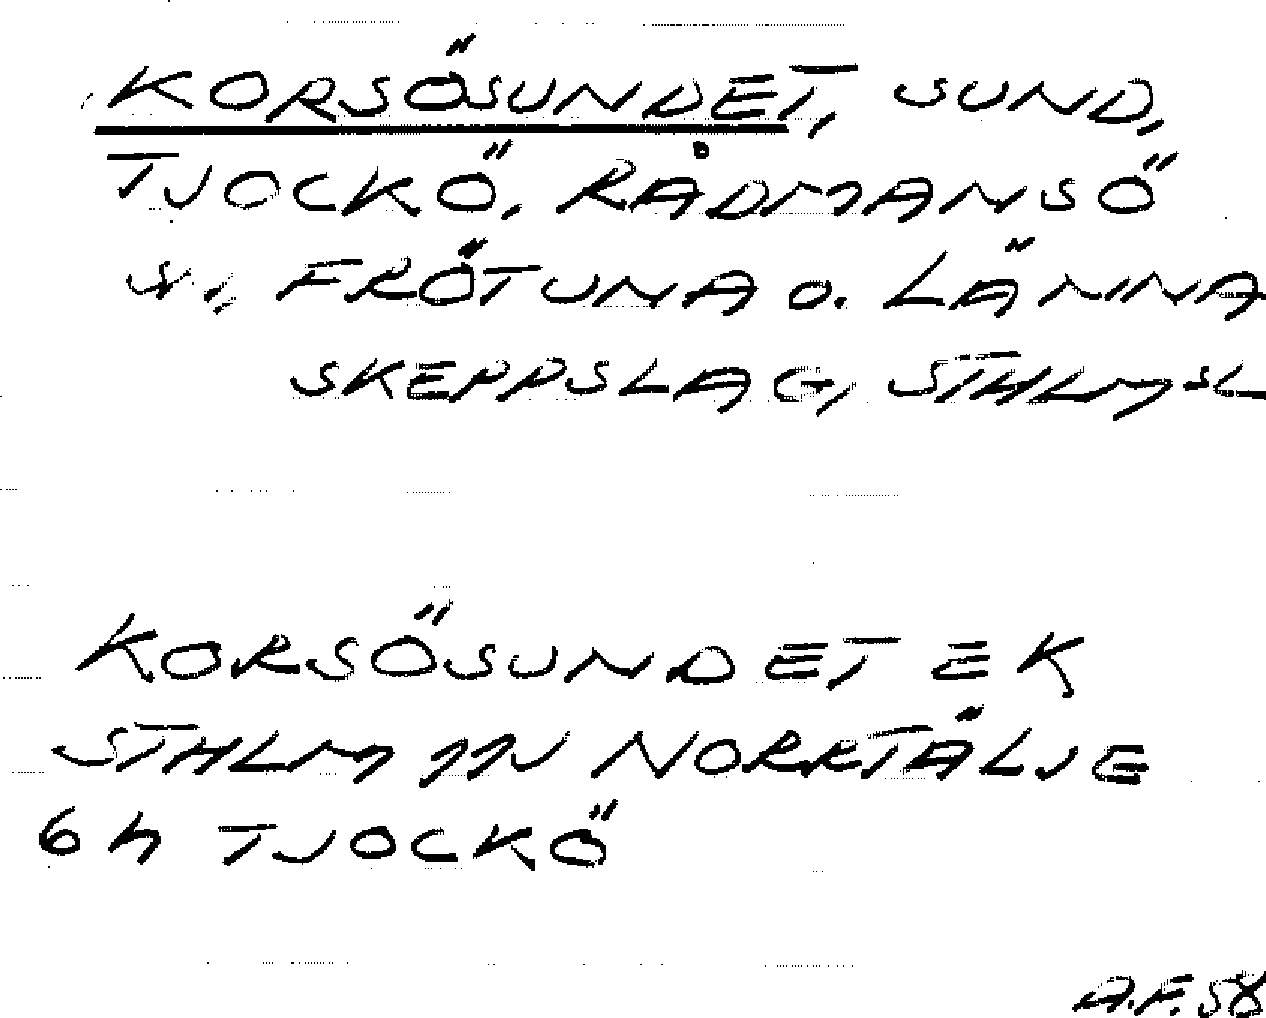 KORSÖSUNDET, SUND,
TJOCKÖ, RÅDMANSÖ
FRÖTUNA O. LÄNNA
SKEPPSLAG, STHLMSL
KORSÖSUNDET EK
STHLM 11N NORRTÄLJE
6h TJOCKÖ
A.F. 58